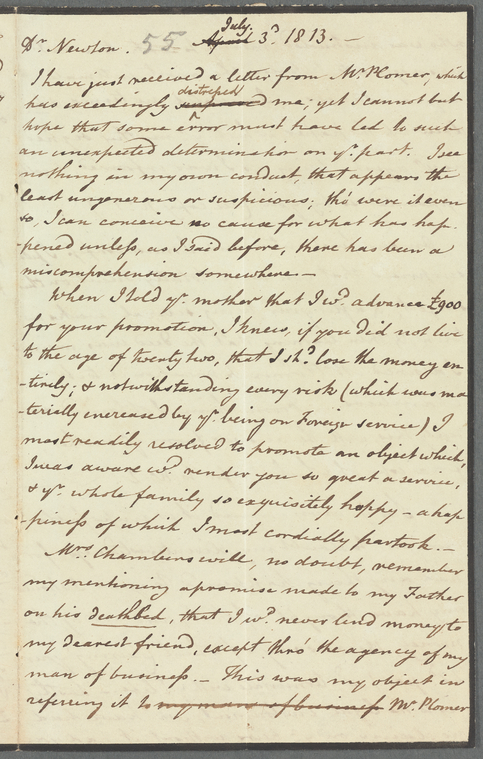 July
Dr. Newton. 55 April 3d. 1813. —
I have just received a letter from Mr. Plomer, which
distressed
has exceedingly surprised me; yet I cannot but
hope that some error must have led to such
an unexpected determination on yr. part. I see
nothing in my own conduct, that appears the
least ungenerous or suspicious; tho' were it even
so, I can conceive no cause for what has hap-
-pened unless, as I said before, there has been a
miscomprehension somewhere —
When I told yr. mother that I wd. advance £900
for your promotion, I knew, if you did not live
to the age of twenty two, that I shd. lose the money en
-tirely; & notwithstanding every risk (which was ma
-terially encreased by yr. being on Foreign service) I
most readily resolved to promote an object which,
I was aware wd. render you so great a service,
& yr. whole family so exquisitely happy – a hap
-piness of which I most cordially partook. —
Mrs. Chambers will, no doubt, remember
my mentioning a promise made to my Father
on his deathbed, that I wd. never lend money to
my dearest friend, except thro' the agency of my
man of business. — This was my object in
referring it to my man of business Mr. Plomer